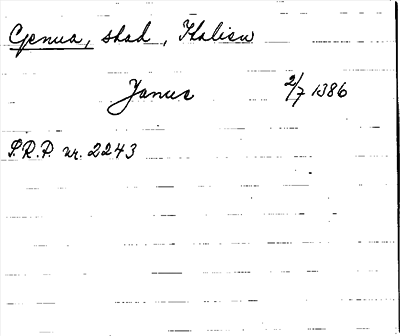 Genua, stad, Italien
Janus 2/7 1386
S.R.P. nr. 2243